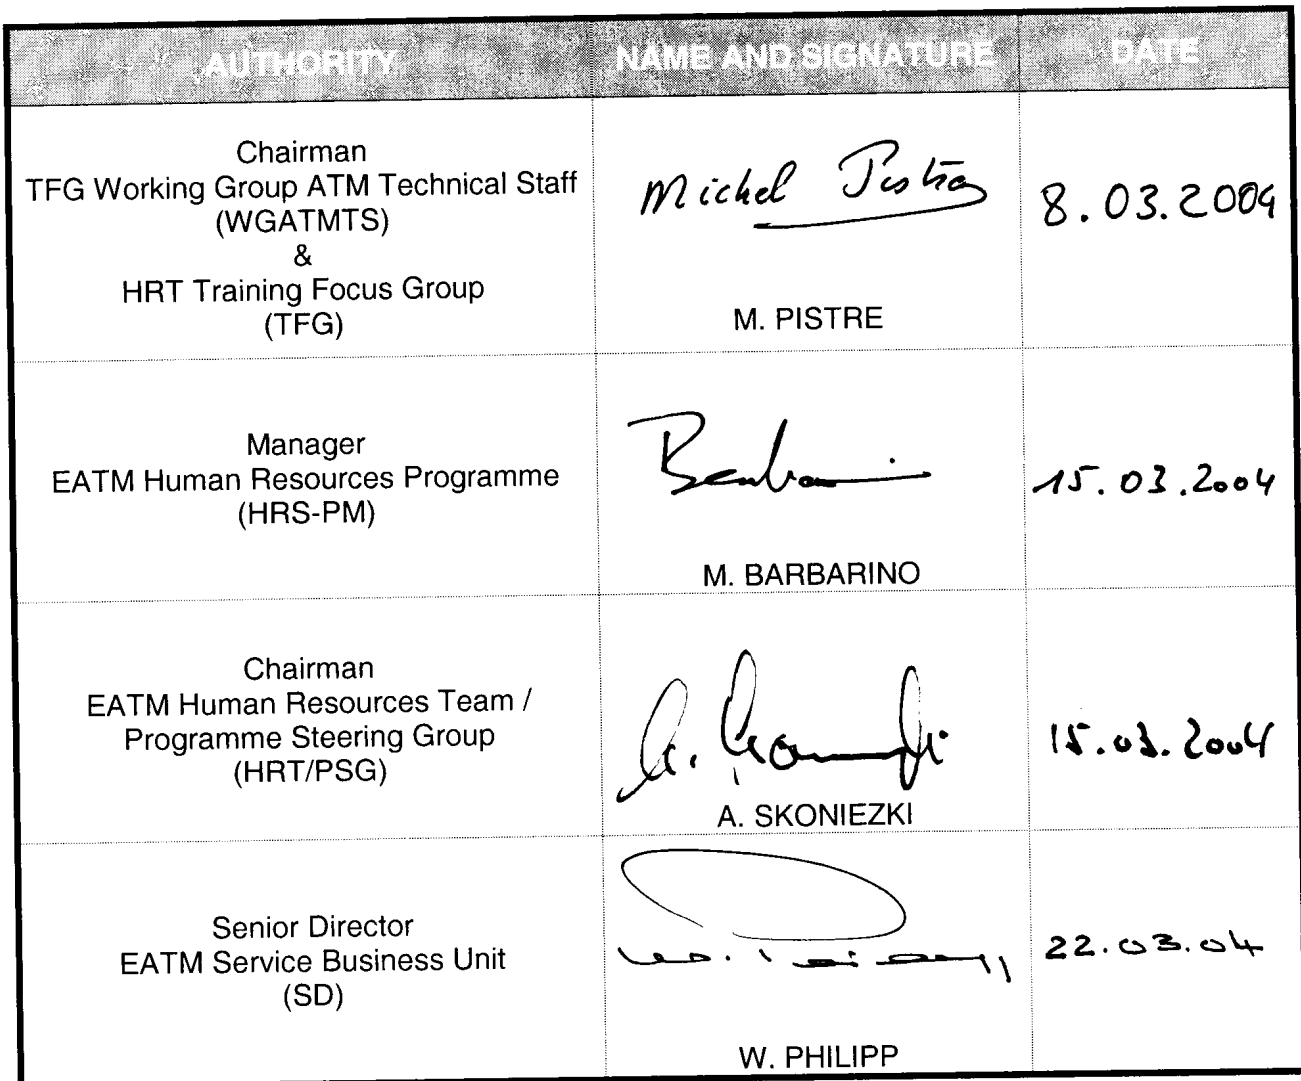 AUTHORITY NAME AND SIGNATURE DATE
Chairman
TFG Working Group ATM Technical Staff
(WGATMTS)
&
HRT Training Focus Group
(TFG)
Michel Pistre
M. PISTRE
8.03.2004
Manager
EATM Human Resources Programme
(HRS-PM)
M. BARBARINO
15.03.2004
Chairman
EATM Human Resources Team /
Programme Steering Group
(HRT/PSG)
A. SKONIEZKI
15.03.2004
Senior Director
EATM Service Business Unit
(SD)
W. PHILIPP
22.03.04